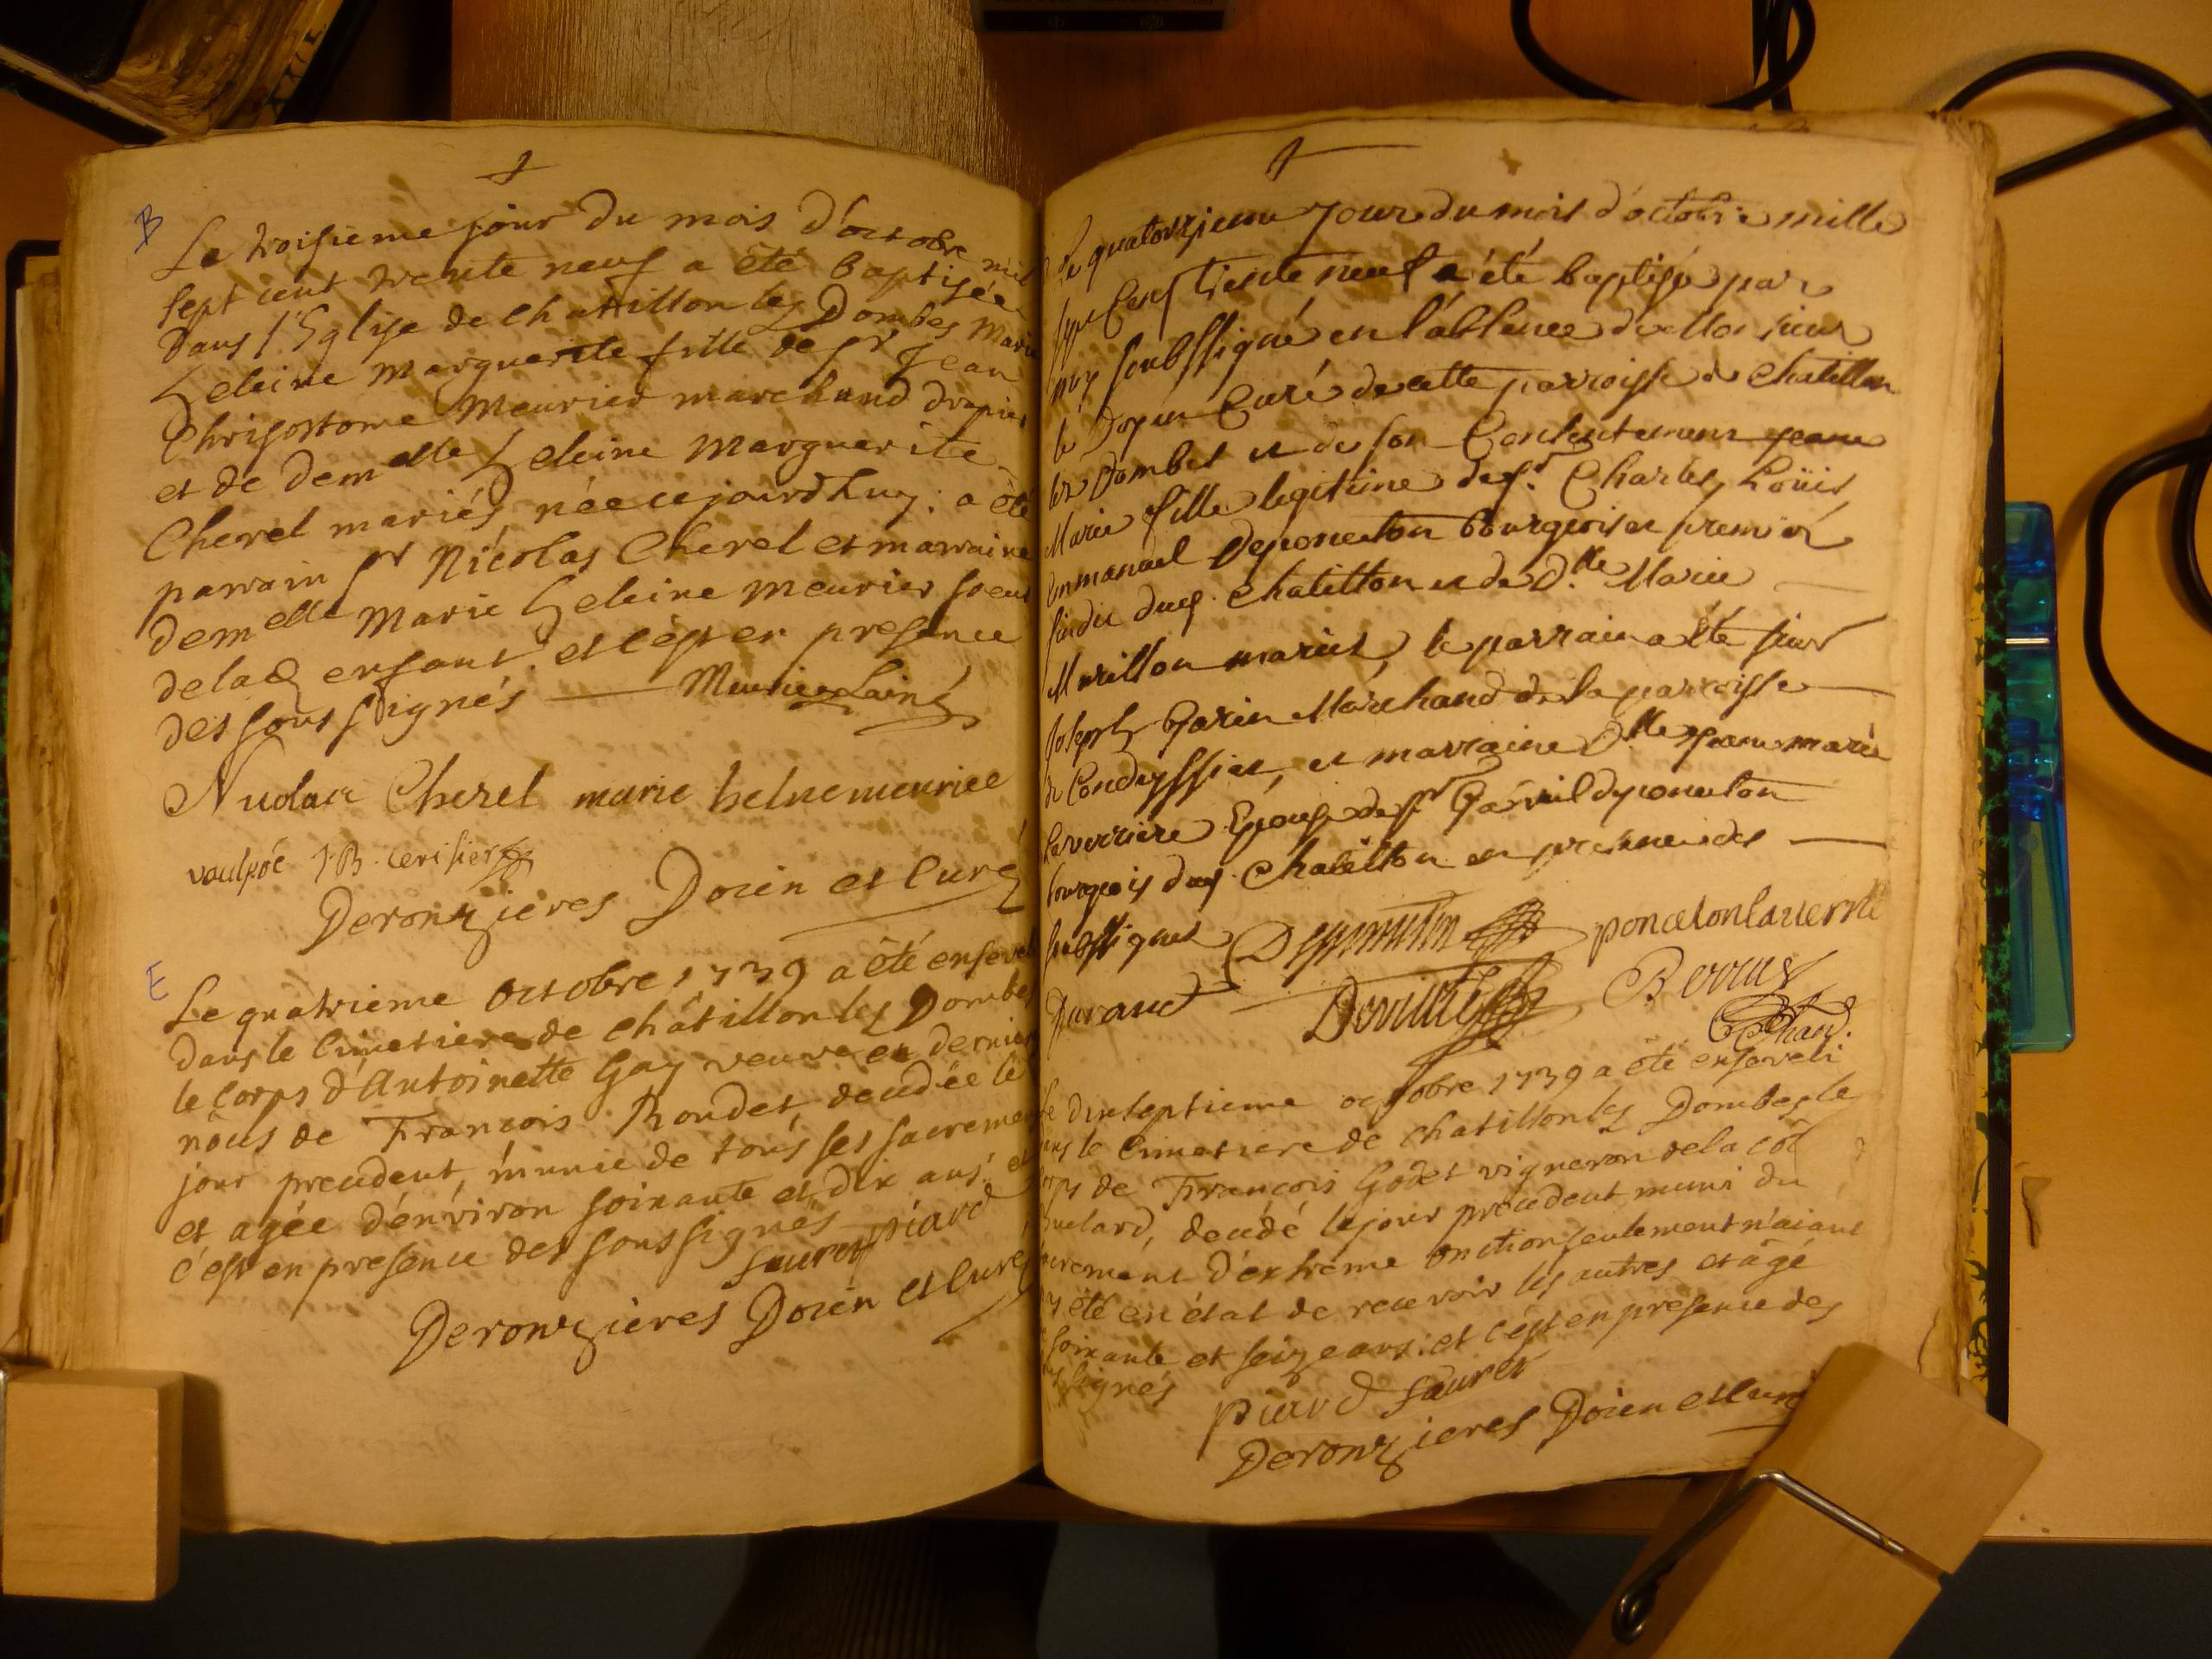 B
Le troisieme jour du mois d'octobre mil
sept cent trente neuf a été baptisée
dans l'Eglise de chatillon les Dombes Marie
heleine Marguerite fille de sr Jean
Chrisostome Meurier marchand drapier
et de demelle heleine Marguerite
Cherel mariés, née ce jourdhuy: a été
parrain sr Nicolas Cherel et marraine
demelle Marie heleine Meurier soeur
de lad enfant. et c'est en presence
des sous signés Meurier Lainé
Cherel marie helne meurier
J.B. cerisier
Deronzieres Doien et Curé
E
Le quatrieme octobre 1739 a été enseveli
dans le Cimetiere de châtillon les Dombes
le corps d'Antoinette Gay veuve en dernier
nôus de François Rondet, decedée le
jour precedent, munie de tous ses sacremens
et agée d'environ soixante et dix ans. et
c'est en presence des sous signés
Sauret piard
Deronzieres Doien et Curé
Le quatorzieme Jour du mois d'octobre mille
sept Cent trente neuf a été baptisée par
moy soubssigné en l'absence de Monsieur
le Doyen Curé de cette parroisse de Chatillon
les Dombes et de son Consentement jeanne
Marie fille legitime de sr. Charles Loüis
Emmanuel Deponceton bourgeois et premier
sindic dud. Chatillon et de Dlle Marie
Murillon mariés, le parrain a été sieur
Joseph Garin Marchand de la parroisse
de Condeyssiat, et marraine Dlle jeanne marie
Laverriere Epouse de sr Gabriel deponceton
bourgeois dud. Chatillon en presence des
soubssignés poncetonlaverriere
Durand
Le dixseptieme octobre 1739 a été enseveli
dans le Cimetiere de chatillon les Dombes le
corps de François Godet vigneron de la côt
, decedé le jour precedent muni du
sacrement d'extrême onction seulement n'aiant
pas été en état de recevoir les autres et âgé
de soixante et seize ans: et c'est en presence des
signés piard Sauret
Deronzieres Doien et Curé